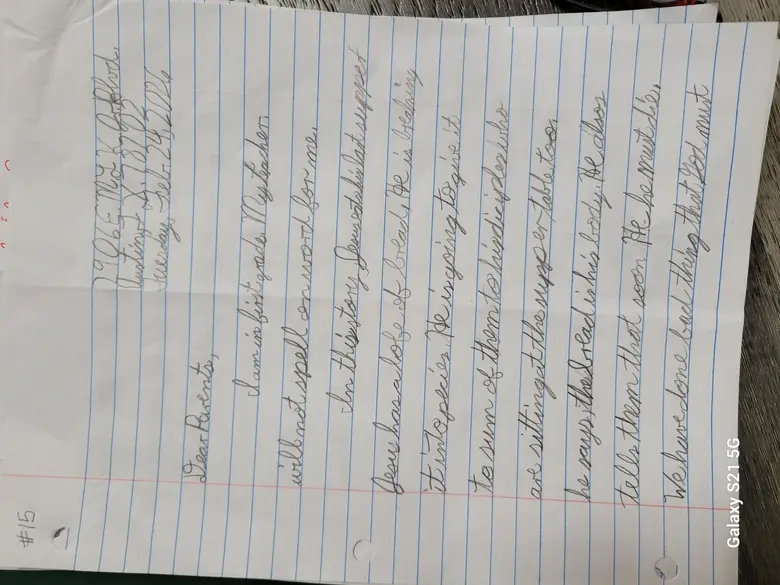 #15
Austin, 
Tuesday, Feb. 24, 2026
Dear Parents,
I am in first grade. My teacher
will not spell on word for me.
In this story, Jesus at his last supper
Jesus has a lofe of bread. He is breaking
it into pecies. He is going to give it
to sum of them to his disciples who
are sitting at the supper table too.
he says the bread is his body. He also
tells them that soon He he must die.
We have done bad thing that God must
Galaxy S21 5G